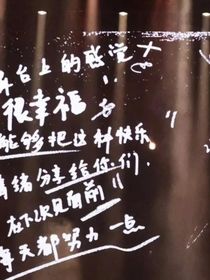 台上的感觉
很幸福
能够把这种快乐
情绪分享给你们.
在下次见面前
每天都努力一点